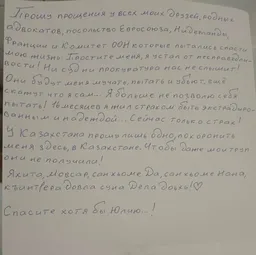 Прошу прошения у всех моих друзей, родных
адвокатов, посольство Евросоюза, Нидерланды,
Франции и Комитет ООН которые пытались спасти
мою жизнь. Простите меня, я устал от несправедли-
вости! Ни суд ни прокуратура нас не слышит!
Они будут меня мучать, пытать и убьют, ещё
скажут что я сам– Я больше не позволю себя
пытать! 18 месяцев я жил страхом быть экстрадиро-
ванным и надеждой... Сейчас только страх!
У Казахстана прошу лишь одно, похоронить
меня здесь, в Казахстане. Чтобы даже мой труп
они не получили!
Яхита, Мовсар, сан хьоме Да, сан хьоме Нана,
Дела
Спасите хотя бы Юлию...!